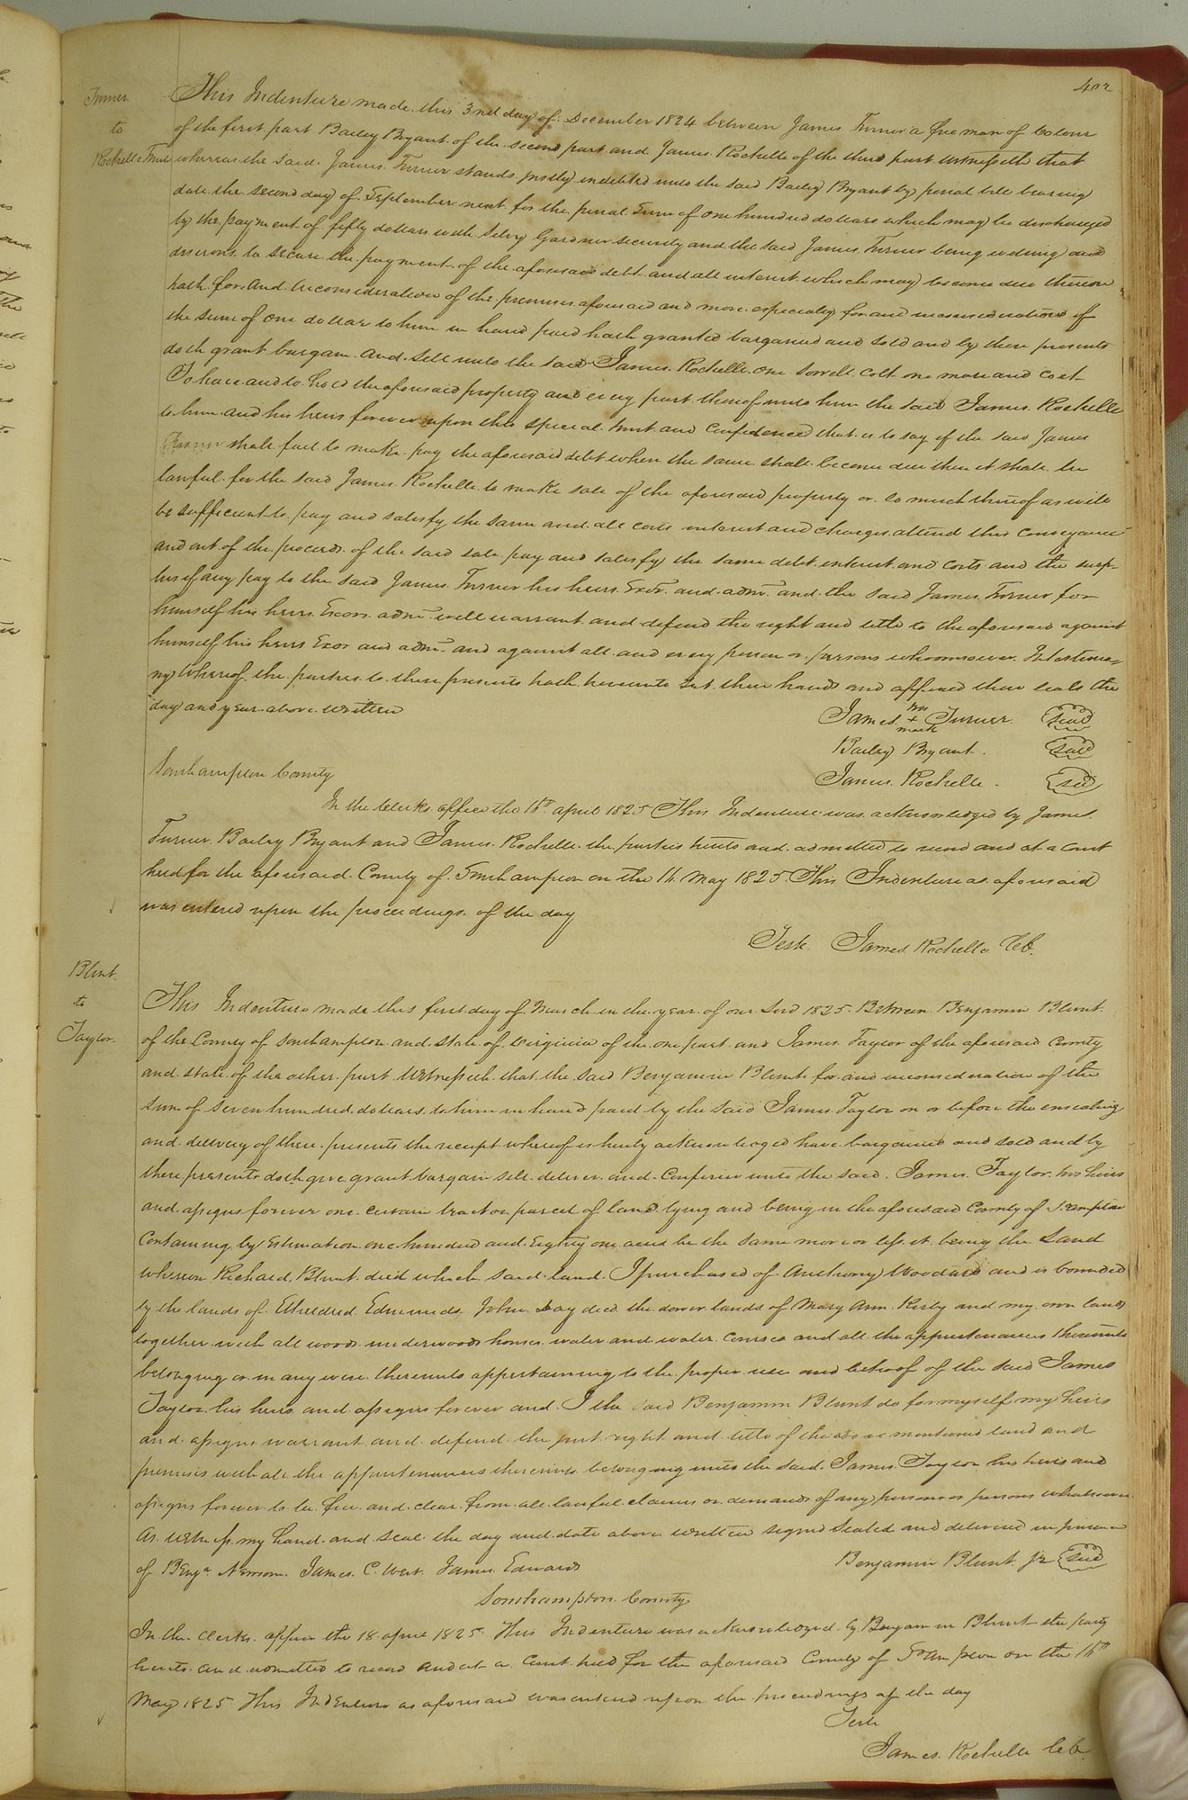 402
Turner
to
Rochelle Trust
This Indenture made this 3nd day of December 1824 between James Turner a free man of Colour
of the first part Bailey Bryant of the second part and James Rochelle of the third part Witnesseth that
whereas the said James Turner stands justly indebted unto the said Bailey Bryant by penal bill bearing
date the second day of September next for the penal Sum of one hundred dollars which may be discharged
by the payment of fifty dollars with Silvy Gardner security and the said James Turner being willing and
desirous to secure the payment of the aforesaid debt and all interest which may become due thereon
hath for and inconsideration of the premises aforesaid and more especially for and inconsideration of
the sum of one dollar to him in hand paid hath granted bargained and sold and by these presents
doth grant bargain and sell unto the said James Rochelle one Sorrell colt one mare and colt
To have and to hold the aforesaid property and every part thereof unto him the said James Rochelle
to him and his heirs forever upon this special trust and Confidence that is to say if the said James
Turner shall fail to make pay the aforesaid debt when the same shall become due then it shall be
lawful for the said James Rochelle to make sale of the aforesaid property or so much thereof as will
be sufficient to pay and satisfy the same and all costs interest and charges attend this Conveyance
and out of the proceeds of the said sale pay and satisfy the same debt interest and costs and the surp-
lus if any pay to the said James Turner his heirs Exor. and admr. and the said James Turner for
himself his heirs Exors admr. will warrant and defend the right and title to the aforesaid against
himself his heirs Exor and admr. and against all and every person or persons whomsoever. In testimo-
ny whereof the parties to these presents hath hereunto set their hands and affixed their seals the
day and year above written
his
James + Turner (seal)
mark
Bailey Bryant (seal)
James Rochelle (seal)
Southampton County
In the Clerks office the 18th april 1825 This Indenture was acknowledged by James
Turner Bailey Bryant and James Rochelle the parties hereto and admitted to record and at a Court
held for the aforesaid County of Southampton on the 16 May 1825 This Indenture as aforesaid
was entered upon the proceedings of the day
Teste James Rochelle Cb.
Blunt
to
Taylor
This Indenture made this first day of March in the year of our Lord 1825 Between Benjamin Blunt
of the County of Southampton and State of Virginia of the one part and James Taylor of the aforesaid County
and state of the other part Witnesseth that the said Benjamin Blunt for and inconsideration of the
sum of seven hundred dollars to him in hand paid by the said James Taylor on or before the ensealing
and delivery of these presents the receipt whereof is hereby acknowledged have bargained and sold and by
these presents doth give grant bargain sell deliver and Confirm unto the said James Taylor his heirs
and assigns forever one certain tract or parcel of land lying and being in the aforesaid County of S.ampton
Containing by Estimation one hundred and Eighty one acres be the same more or less it being the Land
whereon Richard Blunt died which said land I purchased of Anthony Woodard and is bounded
by the lands of Etheldred Edmunds John Day decd the dower lands of Mary Ann Kirby and my own lands
together with all woods underwoods houses water and water courses and all the appurtenances thereunto
belonging or in any wise thereunto appertaining to the proper use and behoof of the said James
Taylor his heirs and assigns forever and I the said Benjamin Blunt do for myself my heirs
and assigns warrant and defend the just right and title of the above mentioned land and
premises with all the appurtenances thereunto belonging unto the said James Taylor his heirs and
assigns forever to be free and clear from all lawful claims or demands of any person or persons whatsoever
As witness my hand and seal the day and date above written signed Sealed and delivered in presence
of Benja Newsom James C. West James Edwards
Benjamin Blunt Jr (seal)
Southampton County
In the clerks office the 18 april 1825 This Indenture was acknowledged by Benjamin Blunt the party
hereto and admitted to record and at a Court held for the aforesaid County of S.ampton on the 16th
May 1825 This Indenture as aforesaid was entered upon the proceedings of the day
Teste
James Rochelle Cb.